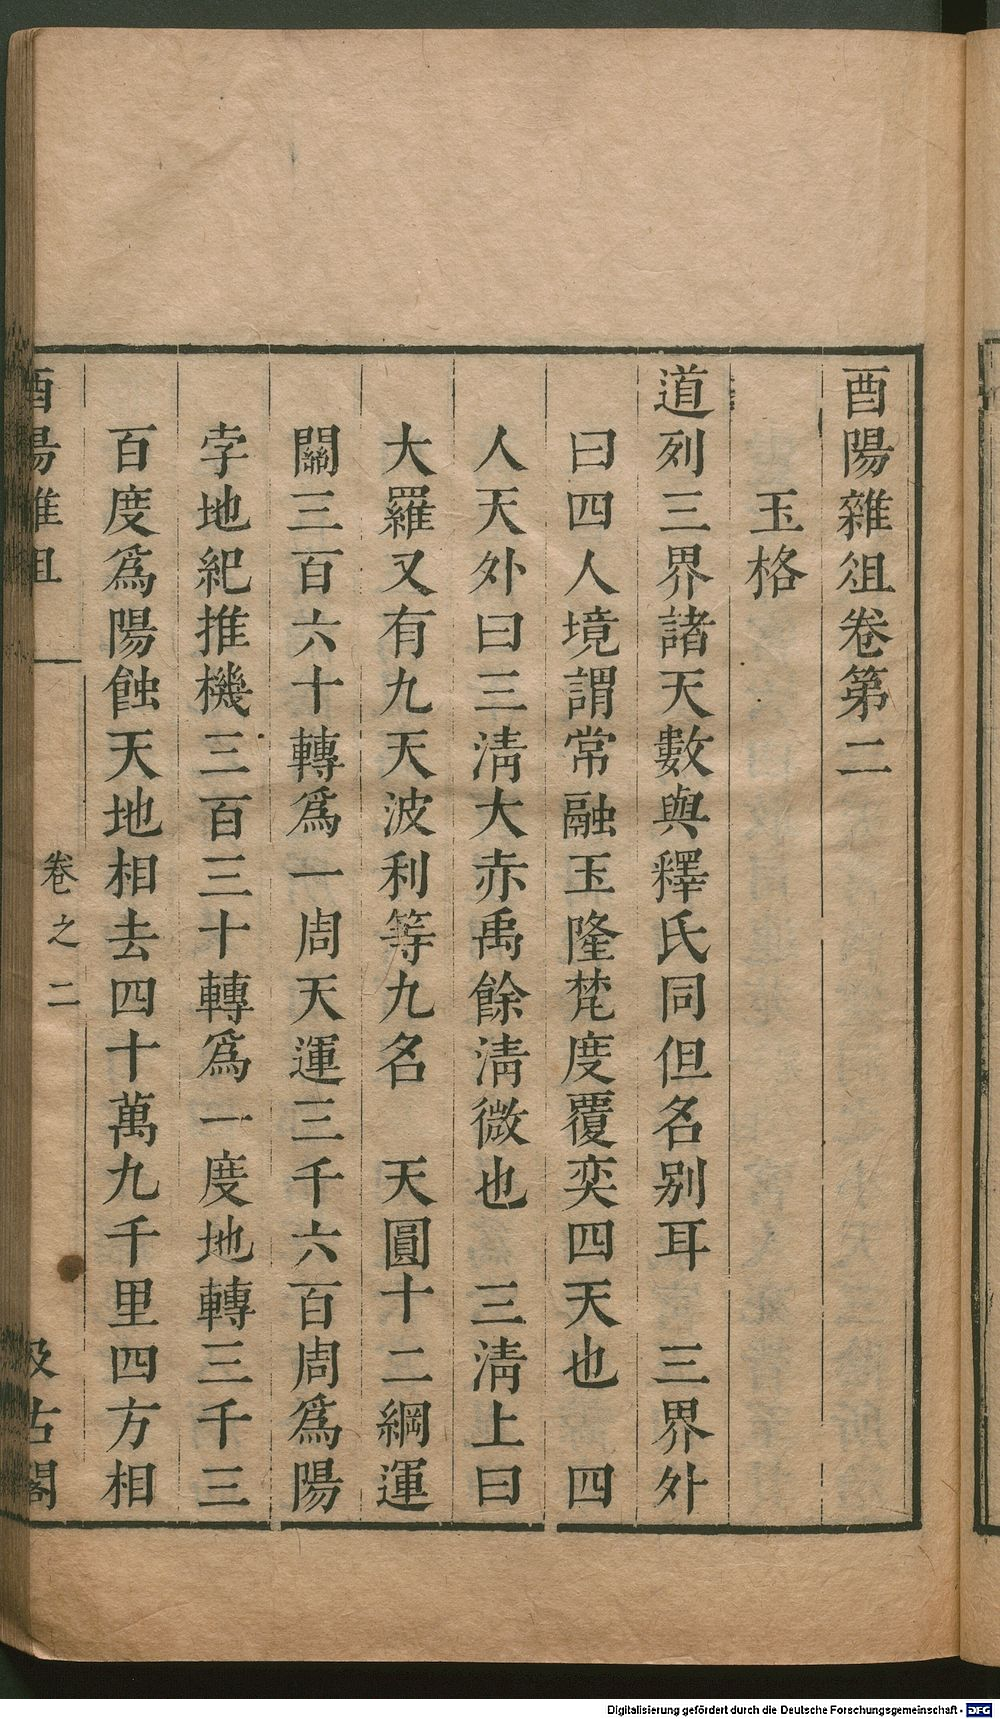 酉陽雜俎卷第二
玉格
道列三界諸天數與釋氏同但名别耳　三界外
曰四人境謂常融玉隆梵度覆奕四天也　四
人天外曰三淸大赤禹餘淸微也　三淸上曰
大羅又有九天波利等九名　天圓十二綱運
關三百六十轉爲一周天運三千六百周爲陽
孛地紀推機三百三十轉爲一度地轉三千三
百度爲陽蝕天地相去四十萬九千里四方相
酉陽雜俎　卷之二　汲古閣
Digitalisierung gefördert durch die Deutsche Forschungsgemeinschaft - DFG